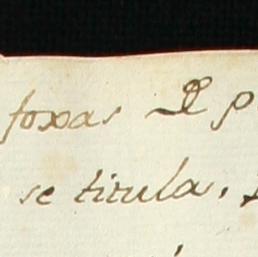 foxas
se titula.